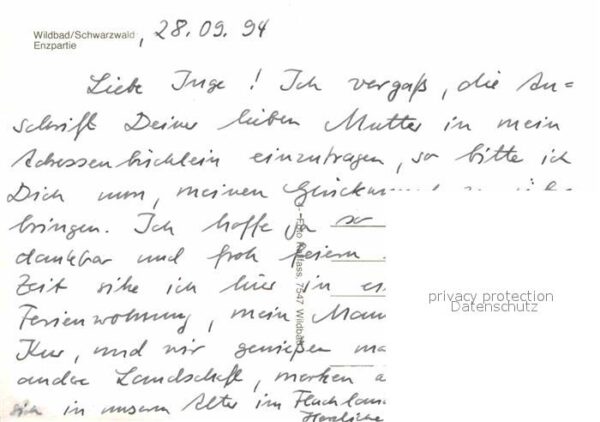 Wildbad/Schwarzwald
Enzpartie
28.09.94
Liebe Inge! Ich vergaß, die An-
schrift Deiner lieben Mutter in mein
Adressenbüchlein einzutragen, so bitte ich
Dich nun, meinen
bringen. Ich hoffe so
dankbar und froh feiern
Zeit sitze ich hier in
Ferienwohnung, mein
Kur, und wir genießen
andere Landschaft, merken
sich in unserm Alter im
Herzliche
7547 Wildbad
privacy protection
Datenschutz